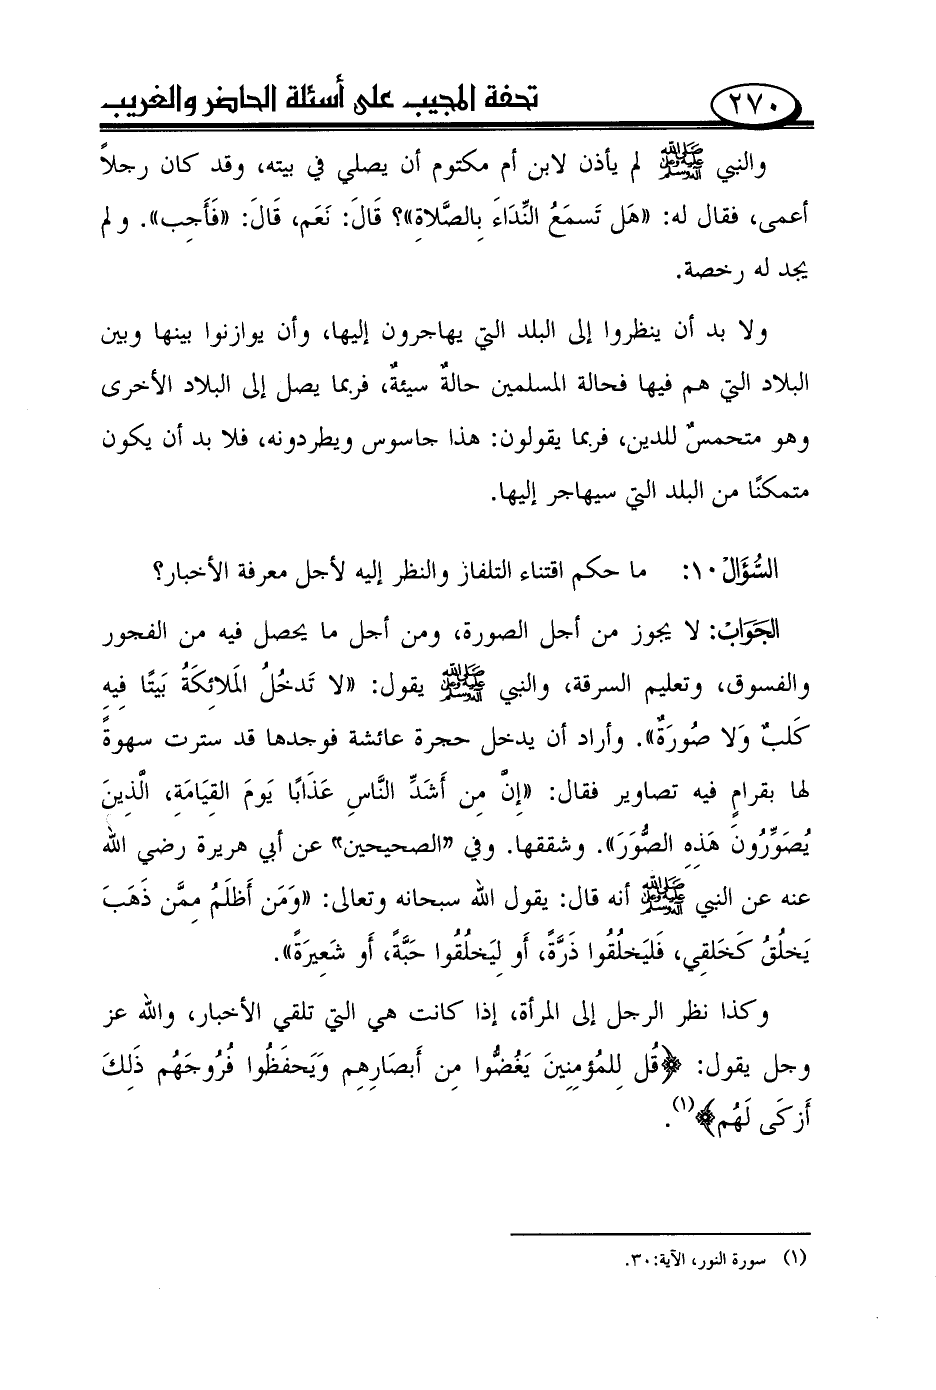 ٢٧٠ تحفة المجيب على أسئلة الحاضر والغريب
والنبي ﷺ لم يأذن لابن أم مكتوم أن يصلي في بيته، وقد كان رجلاً
أعمى، فقال له: «هَل تَسمَعُ النِّدَاءَ بِالصَّلاةِ»؟ قَالَ: نَعَم، قَالَ: «فَأَجِب». ولم
يجد له رخصة.
ولا بد أن ينظروا إلى البلد التي يهاجرون إليها، وأن يوازنوا بينها وبين
البلاد التي هم فيها فحالة المسلمين حالةٌ سيئةٌ، فربما يصل إلى البلاد الأخرى
وهو متحمسٌ للدين، فربما يقولون: هذا جاسوس ويطردونه، فلا بد أن يكون
متمكنًا من البلد التي سيهاجر إليها.
السُّؤَالُ ١٠: ما حكم اقتناء التلفاز والنظر إليه لأجل معرفة الأخبار؟
الجَوَابُ: لا يجوز من أجل الصورة، ومن أجل ما يحصل فيه من الفجور
والفسوق، وتعليم السرقة، والنبي ﷺ يقول: «لا تَدخُلُ المَلائِكَةُ بَيتًا فِيهِ
كَلبٌ وَلا صُورَةٌ». وأراد أن يدخل حجرة عائشة فوجدها قد سترت سهوةً
لها بقرامٍ فيه تصاوير فقال: «إِنَّ مِن أَشَدِّ النَّاسِ عَذَابًا يَومَ القِيَامَةِ، الَّذِينَ
يُصَوِّرُونَ هَذِهِ الصُّوَرَ». وشققها. وفي "الصحيحين" عن أبي هريرة رضي الله
عنه عن النبي ﷺ أنه قال: يقول الله سبحانه وتعالى: «وَمَن أَظلَمُ مِمَّن ذَهَبَ
يَخلُقُ كَخَلقِي، فَليَخلُقُوا ذَرَّةً، أَو لِيَخلُقُوا حَبَّةً، أَو شَعِيرَةً».
وكذا نظر الرجل إلى المرأة، إذا كانت هي التي تلقي الأخبار، والله عز
وجل يقول: ﴿قُل لِلمُؤمِنِينَ يَغُضُّوا مِن أَبصَارِهِم وَيَحفَظُوا فُرُوجَهُم ذَلِكَ
أَزكَى لَهُم﴾(١).
(١) سورة النور، الآية:٣٠.